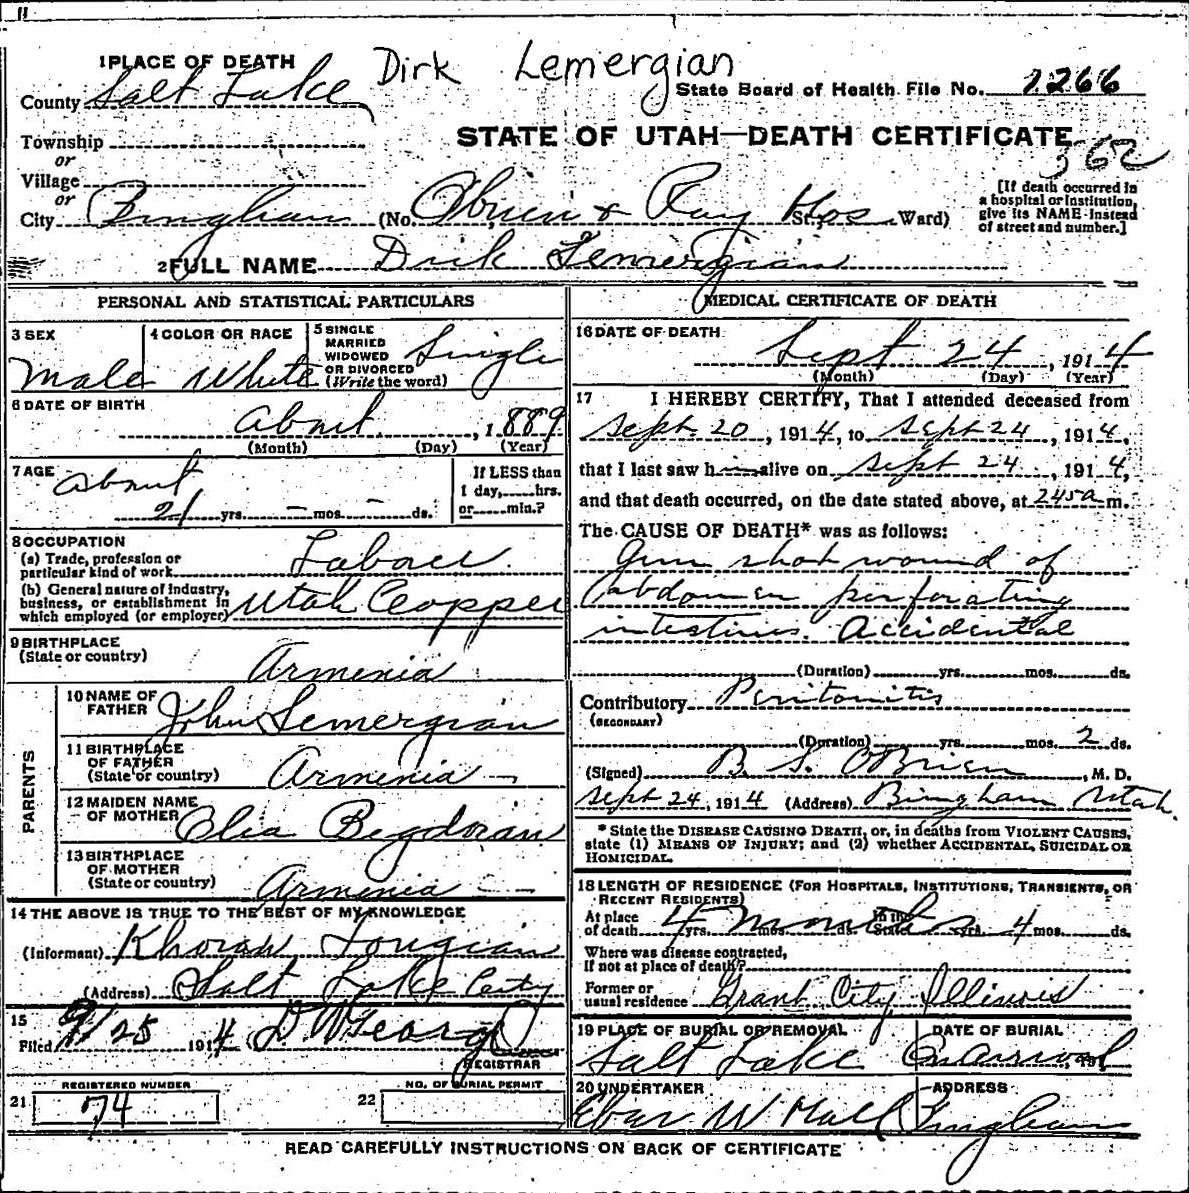 Dirk Lemergian
1 PLACE OF DEATH
County Salt Lake
State Board of Health File No. 1266
Township
STATE OF UTAH—DEATH CERTIFICATE
or
362
Village
or
City Bingham (No. O'Brien & Ray Hos St.; Ward)
[If death occurred in
a hospital or institution,
give its NAME instead
of street and number.]
2 FULL NAME Dirk Lemergian
PERSONAL AND STATISTICAL PARTICULARS
3 SEX
Male
4 COLOR OR RACE
White
5 SINGLE
MARRIED
WIDOWED
OR DIVORCED
(Write the word)
Single
6 DATE OF BIRTH
about, 1889
(Month) (Day) (Year)
7 AGE
about
21 yrs. — mos. — ds.
If LESS than
1 day,......hrs.
or......min.?
8 OCCUPATION
(a) Trade, profession or
particular kind of work Laborer
(b) General nature of industry,
business, or establishment in
which employed (or employer) Utah Copper
9 BIRTHPLACE
(State or country)
Armenia
PARENTS
10 NAME OF
FATHER John Lemergian
11 BIRTHPLACE
OF FATHER
(State or country) Armenia —
12 MAIDEN NAME
OF MOTHER Begdoian
13 BIRTHPLACE
OF MOTHER
(State or country) Armenia — —
14 THE ABOVE IS TRUE TO THE BEST OF MY KNOWLEDGE
(Informant)
(Address) Salt Lake City
15
Filed 9/25 1914
REGISTRAR
REGISTERED NUMBER
21 74
NO. OF BURIAL PERMIT
22
MEDICAL CERTIFICATE OF DEATH
16 DATE OF DEATH
Sept 24, 1914
(Month) (Day) (Year)
17 I HEREBY CERTIFY, That I attended deceased from
Sept. 20, 1914, to Sept 24, 1914,
that I last saw him alive on Sept 24, 1914,
and that death occurred, on the date stated above, at 245a m.
The CAUSE OF DEATH* was as follows:
Gun shot wound of
Abdomen perforating
intestines. Accidental
(Duration) yrs. mos. ds.
Contributory Peritonitis
(SECONDARY)
(Duration) yrs. mos. 2 ds.
(Signed) B. S. O'Brien, M. D.
Sept 24, 1914 (Address) Bingham Utah.
* State the DISEASE CAUSING DEATH, or, in deaths from VIOLENT CAUSES,
state (1) MEANS OF INJURY; and (2) whether ACCIDENTAL, SUICIDAL OR
HOMICIDAL.
18 LENGTH OF RESIDENCE (FOR HOSPITALS, INSTITUTIONS, TRANSIENTS, OR
RECENT RESIDENTS)
At place
of death 4 months yrs. mos. ds. In the State yrs. 4 mos. ds.
Where was disease contracted,
If not at place of death?
Former or
usual residence Grant City, Illinois
19 PLACE OF BURIAL OR REMOVAL
Salt Lake
DATE OF BURIAL
On arrival
20 UNDERTAKER
Eban W Hall
ADDRESS
Bingham
READ CAREFULLY INSTRUCTIONS ON BACK OF CERTIFICATE